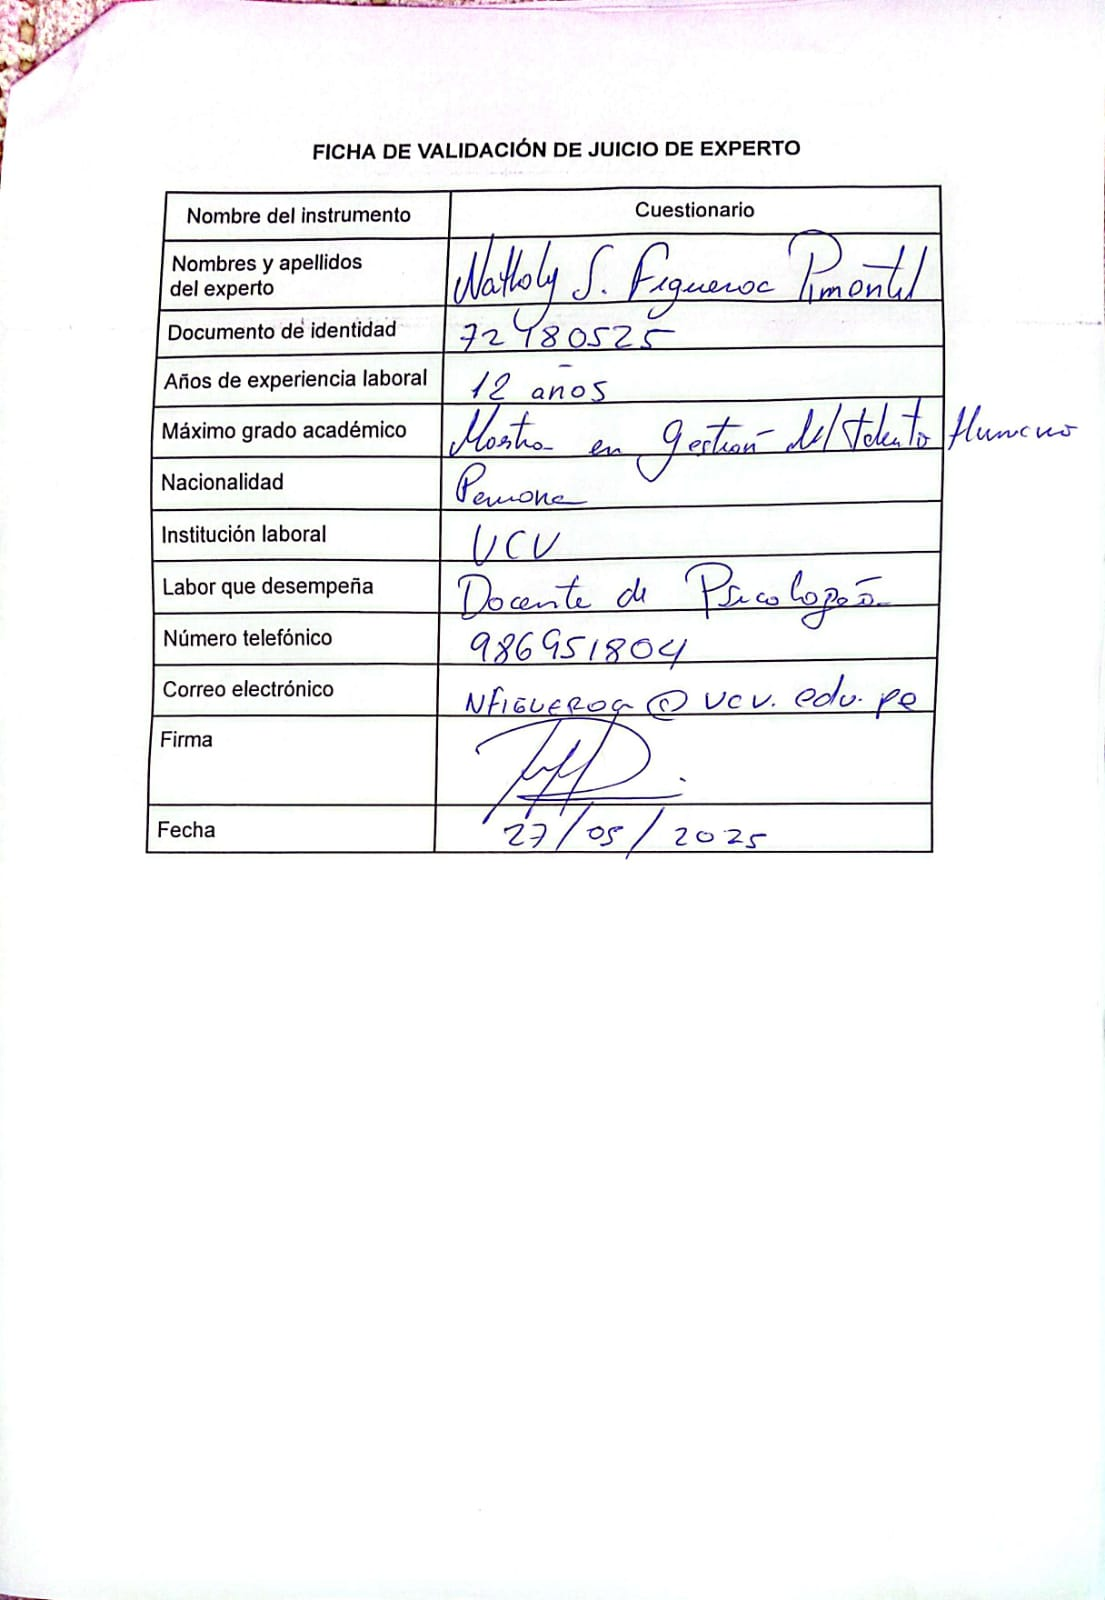 FICHA DE VALIDACIÓN DE JUICIO DE EXPERTO
Nombre del instrumento Cuestionario
Nombres y apellidos
del experto Natholy S. Figueroa Pimentel
Documento de identidad 72480525
Años de experiencia laboral 12 años
Máximo grado académico Maestra en gestión del talento Humano
Nacionalidad Peruana
Institución laboral UCV
Labor que desempeña Docente de Psicología
Número telefónico 986951804
Correo electrónico NFIGUEROA@ucv.edu.pe
Firma
Fecha 27/05/2025